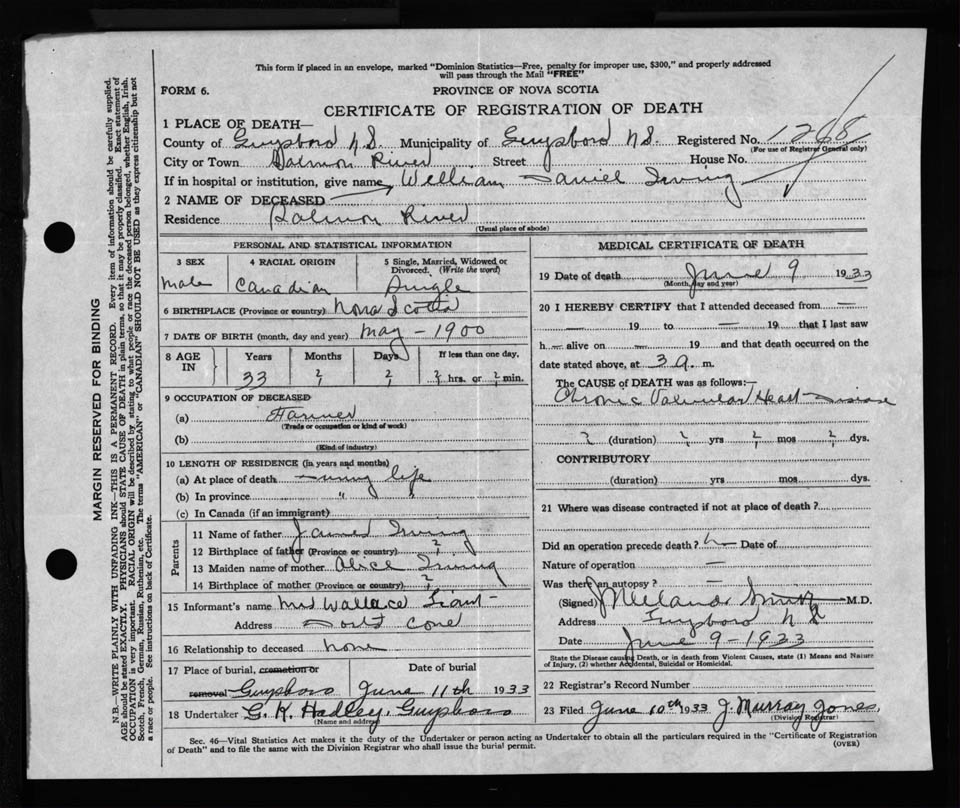 This form if placed in an envelope, marked "Dominion Statistics—Free, penalty for improper use, $300," and properly addressed
will pass through the Mail "FREE"
FORM 6.
PROVINCE OF NOVA SCOTIA
CERTIFICATE OF REGISTRATION OF DEATH
1 PLACE OF DEATH—
County of Guysboro N.S. Municipality of Guysboro N.S. Registered No. 1268
(For use of Registrar General only)
City or Town Salmon River Street House No.
If in hospital or institution, give name William Daniel Irving
2 NAME OF DECEASED
Residence Salmon River
(Usual place of abode)
PERSONAL AND STATISTICAL INFORMATION
3 SEX 4 RACIAL ORIGIN 5 Single, Married, Widowed or Divorced. (Write the word)
male Canadian Single
6 BIRTHPLACE (Province or country) Nova Scotia
7 DATE OF BIRTH (month, day and year) May – 1900
8 AGE IN Years Months Days If less than one day,
33 ? ? ? hrs. or ? min.
9 OCCUPATION OF DECEASED
(a) Farmer
(Trade or occupation or kind of work)
(b)
(Kind of industry)
10 LENGTH OF RESIDENCE (in years and months)
(a) At place of death life
(b) In province " "
(c) In Canada (if an immigrant)
Parents
11 Name of father James Irving
12 Birthplace of father (Province or country) ?
13 Maiden name of mother Alice Irving
14 Birthplace of mother (Province or country) ?
15 Informant's name Mrs Wallace
Address
16 Relationship to deceased none
17 Place of burial, cremation or removal Date of burial
Guysboro June 11th 1933
18 Undertaker G. K. Hadley, Guysboro
(Name and address)
MEDICAL CERTIFICATE OF DEATH
19 Date of death June 9 1933
(Month, day and year)
20 I HEREBY CERTIFY that I attended deceased from —
— 19 to — 19 that I last saw
h— alive on — 19 and that death occurred on the
date stated above, at 3 a. m.
The CAUSE OF DEATH was as follows:—
Chronic Valvular Heart Disease
? (duration) ? yrs ? mos ? dys.
CONTRIBUTORY
(duration) yrs mos dys.
21 Where was disease contracted if not at place of death?
Did an operation precede death? Date of
Nature of operation —
Was there an autopsy? —
(Signed) M.D.
Address Guysboro N S
Date June 9 – 1933
State the Disease causing Death, or in death from Violent Causes, state (1) Means and Nature
of Injury, (2) whether Accidental, Suicidal or Homicidal.
22 Registrar's Record Number
23 Filed June 10th 1933 J. Murray Jones,
(Division Registrar)
Sec. 46—Vital Statistics Act makes it the duty of the Undertaker or person acting as Undertaker to obtain all the particulars required in the "Certificate of Registration
of Death" and to file the same with the Division Registrar who shall issue the burial permit.
(OVER)
MARGIN RESERVED FOR BINDING
N.B.—WRITE PLAINLY WITH UNFADING INK—THIS IS A PERMANENT RECORD. Every item of information should be carefully supplied.
AGE should be stated EXACTLY. PHYSICIANS should STATE CAUSE OF DEATH in plain terms, so that it may be properly classified. Exact statement of
OCCUPATION is very important. RACIAL ORIGIN will be described by stating to what people or race the deceased person belonged, whether English, Irish,
Scotch, French, German, Russian, Ruthenian, etc. The terms "AMERICAN" or "CANADIAN" SHOULD NOT BE USED as they express citizenship but not
a race or people. See instructions on back of Certificate.